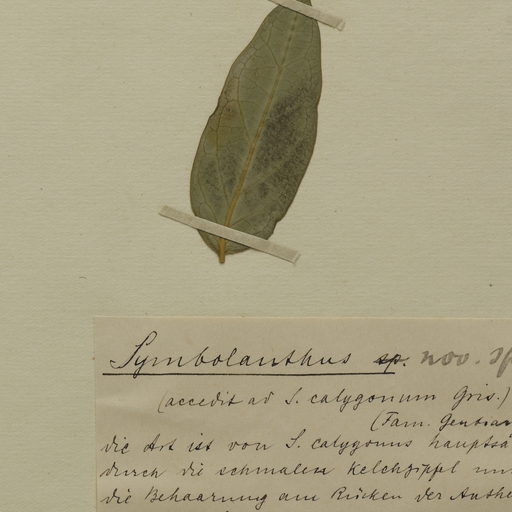 Symbolanthus sp. nov. sp
(accedit ad S. calygonum Gris.)
(Fam. Gentian
die Art ist von S. calygonus hauptsä
durch die schmalen Kelchzipfel un
die Behaarung am Rücken der Anthe